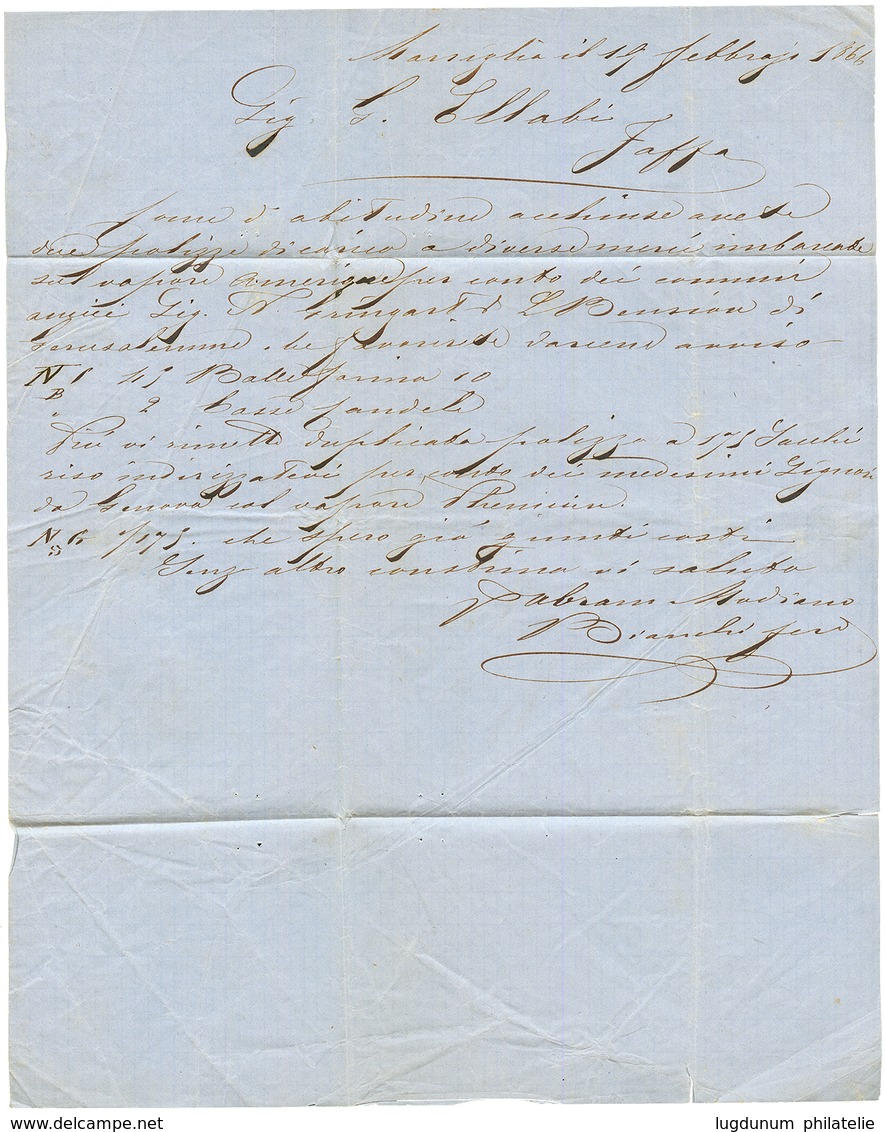 Marsiglia il 19 febbrajo 1866
Sig. S. Ellabi
Jaffa
Come d'abitudine acchiuse avete
due polizze di carico a diverse merci imbarcate
sul vapore Amerique per conto dei comuni
amici Sig. N. & L Bension di
Gerusalemme, che favorirete darcene avviso
N 1 45 Balle farina 10
B
" 2 Casse candele
Più vi rimetto duplicata polizza a 175 Sacchi
riso indirizzatevi per conto dei medesimi Signori
da Genova col vapore Phenicien.
N 1/175. che spero già giunti costì
Senz altro continuo vi saluto
p Abram Modiano
Bianchi
delcampe.net
lugdunum philatelie